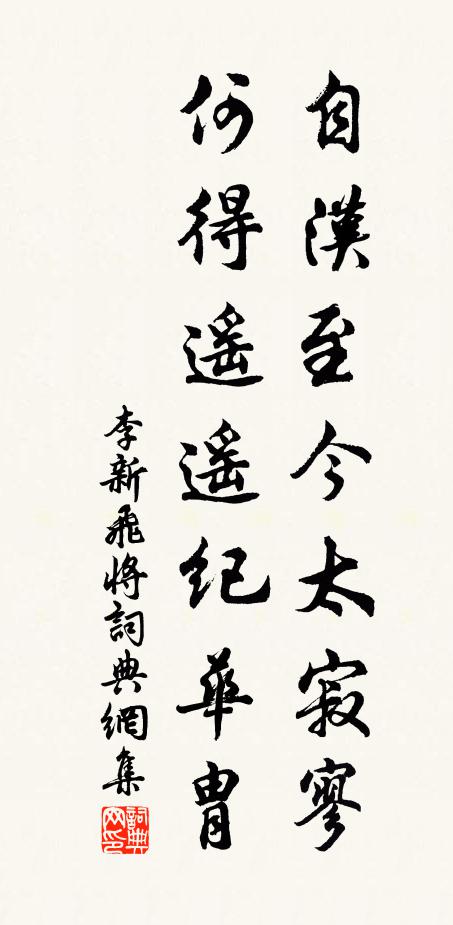 自漢至今太寂寥
何得遥遥紀華冑
李新飛將詞典網集
詞典网印